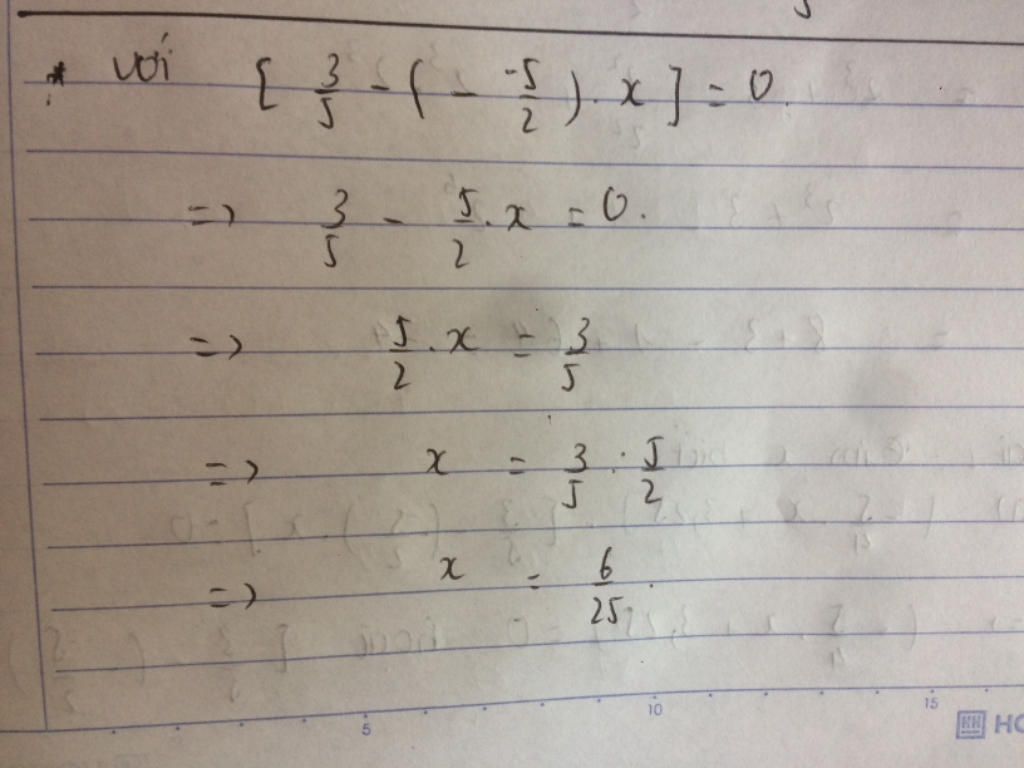 * với [ 3/5 - ( - -5/2 ) . x ] = 0.
=> 3/5 - 5/2 . x = 0.
=> 5/2 . x = 3/5
=> x = 3/5 : 5/2
=> x = 6/25.
5 10 15
HO